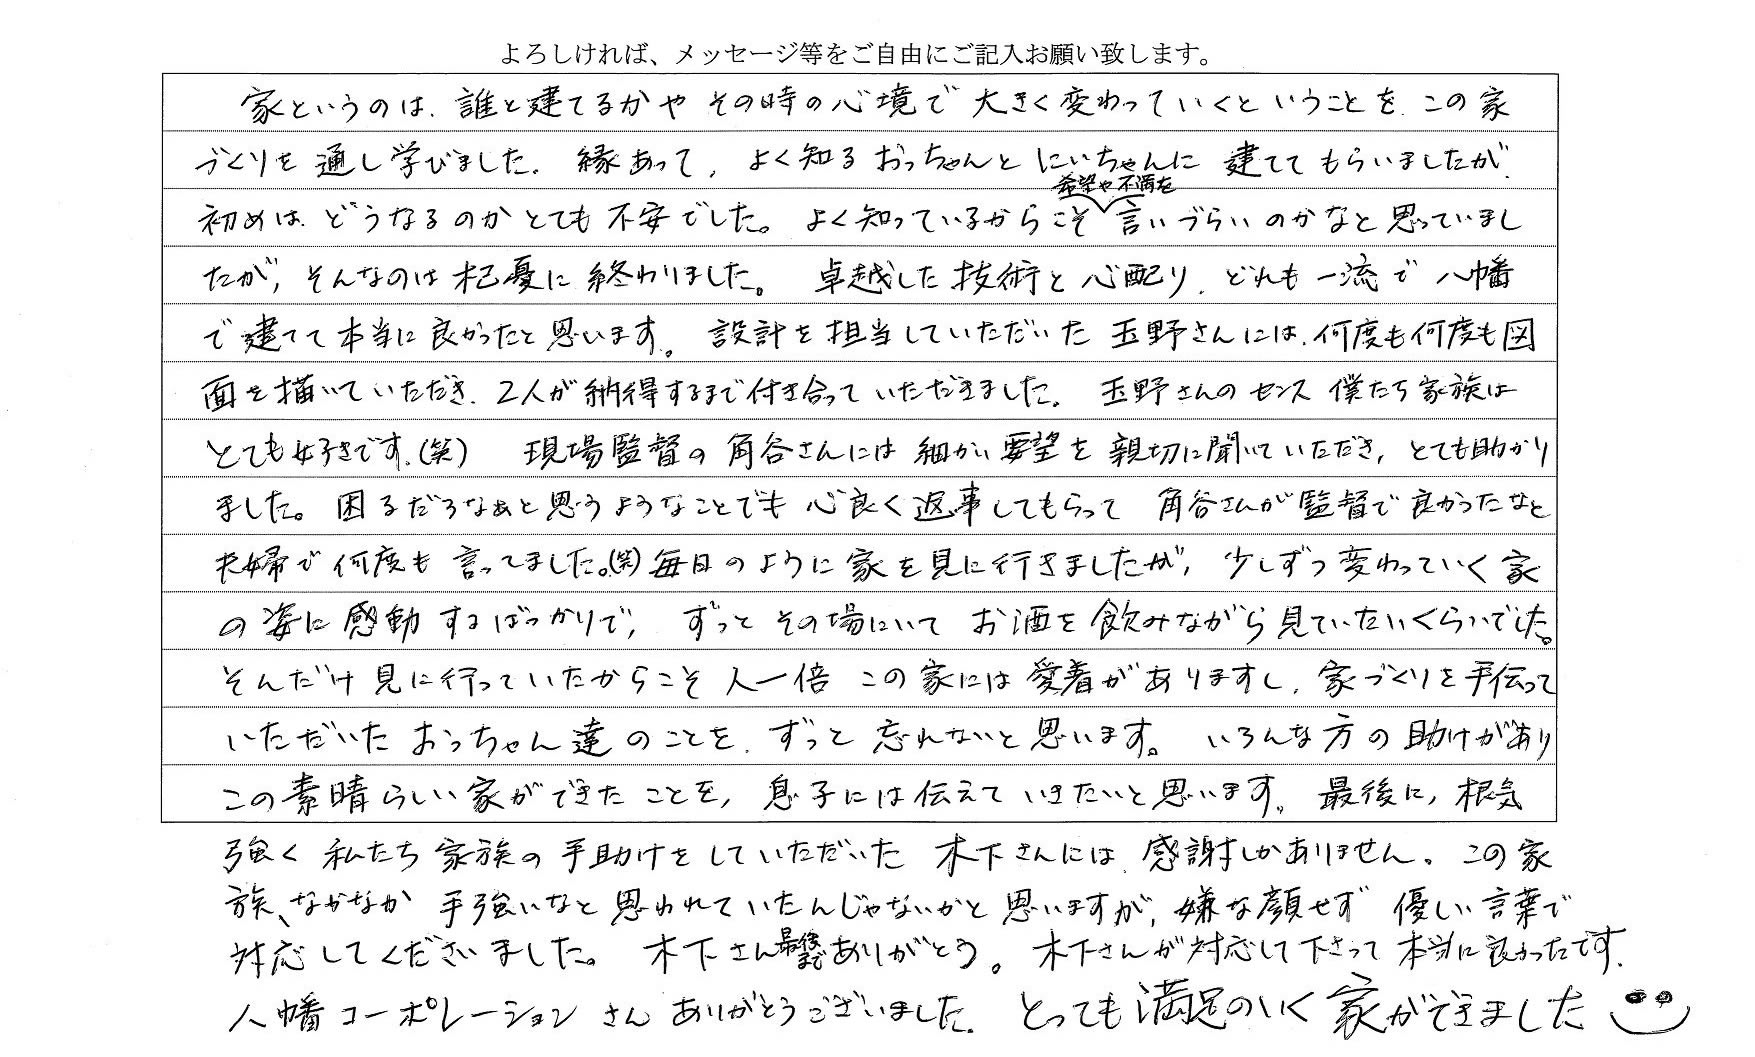 よろしければ、メッセージ等をご自由にご記入お願い致します。
家というのは、誰と建てるかや その時の心境で 大きく変わっていくと いうことを、この家
づくりを 通し学びました。 縁あって、よく知る おっちゃんと にいちゃんに 建ててもらいましたが、
希望や不満を
初めは、どうなるのか とても 不安でした。 よく知っているからこそ 言いづらいのかなと思っていまし
たが、そんなのは 杞憂に終わりました。 卓越した 技術と 心配り、どれも 一流で 八幡
で 建てて 本当に 良かったと 思います。 設計を 担当していただいた 玉野さんには、何度も何度も図
面を描いていただき、2人が納得するまで付き合っていただきました。 玉野さんのセンス 僕たち家族は
とても好きです。(笑) 現場監督の 角谷さんには 細かい要望を 親切に聞いていただき、とても助かり
ました。困るだろなぁと思うようなことでも 心良く返事してもらって 角谷さんが監督で良かったなと
夫婦で何度も 言ってました。(笑)毎日のように 家を見に行きましたが、少しずつ変わっていく家
の姿に感動 するばっかりで、ずっと その場にいて お酒を飲みながら見ていたいくらいでした。
そんだけ 見に行っていたからこそ 人一倍 この家には 愛着がありますし、家づくりを手伝って
いただいた おっちゃん達のことを、ずっと 忘れないと思います。 いろんな方の助けがあり
この素晴らしい家ができたことを、息子には伝えていきたいと思います。 最後に、根気
強く 私たち家族の手助けをしていただいた 木下さんには、感謝しかありません。この家
族、なかなか 手強いなと思われていたんじゃないかと思いますが、嫌な顔せず 優しい言葉で
対応してくださいました。 木下さん最後までありがとう。 木下さんが対応して下さって本当に良かったです。
八幡コーポレーション さん ありがとうございました。 とっても満足のいく家ができました